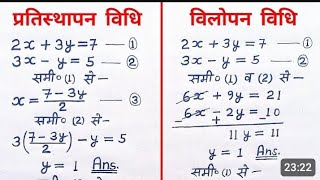 प्रतिस्थापन विधि
2x + 3y = 7 — ①
3x - y = 5 — ②
समी० (1) से -
x = (7 - 3y)/2 — ③
समी० (2) से -
3((7 - 3y)/2) - y = 5
y = 1 Ans.
विलोपन विधि
2x + 3y = 7 — ①
3x - y = 5 — ②
समी० (1) व (2) से -
6x + 9y = 21
6x - 2y = 10
- + -
11y = 11
y = 1 Ans.
समी० (1) से -
23:22